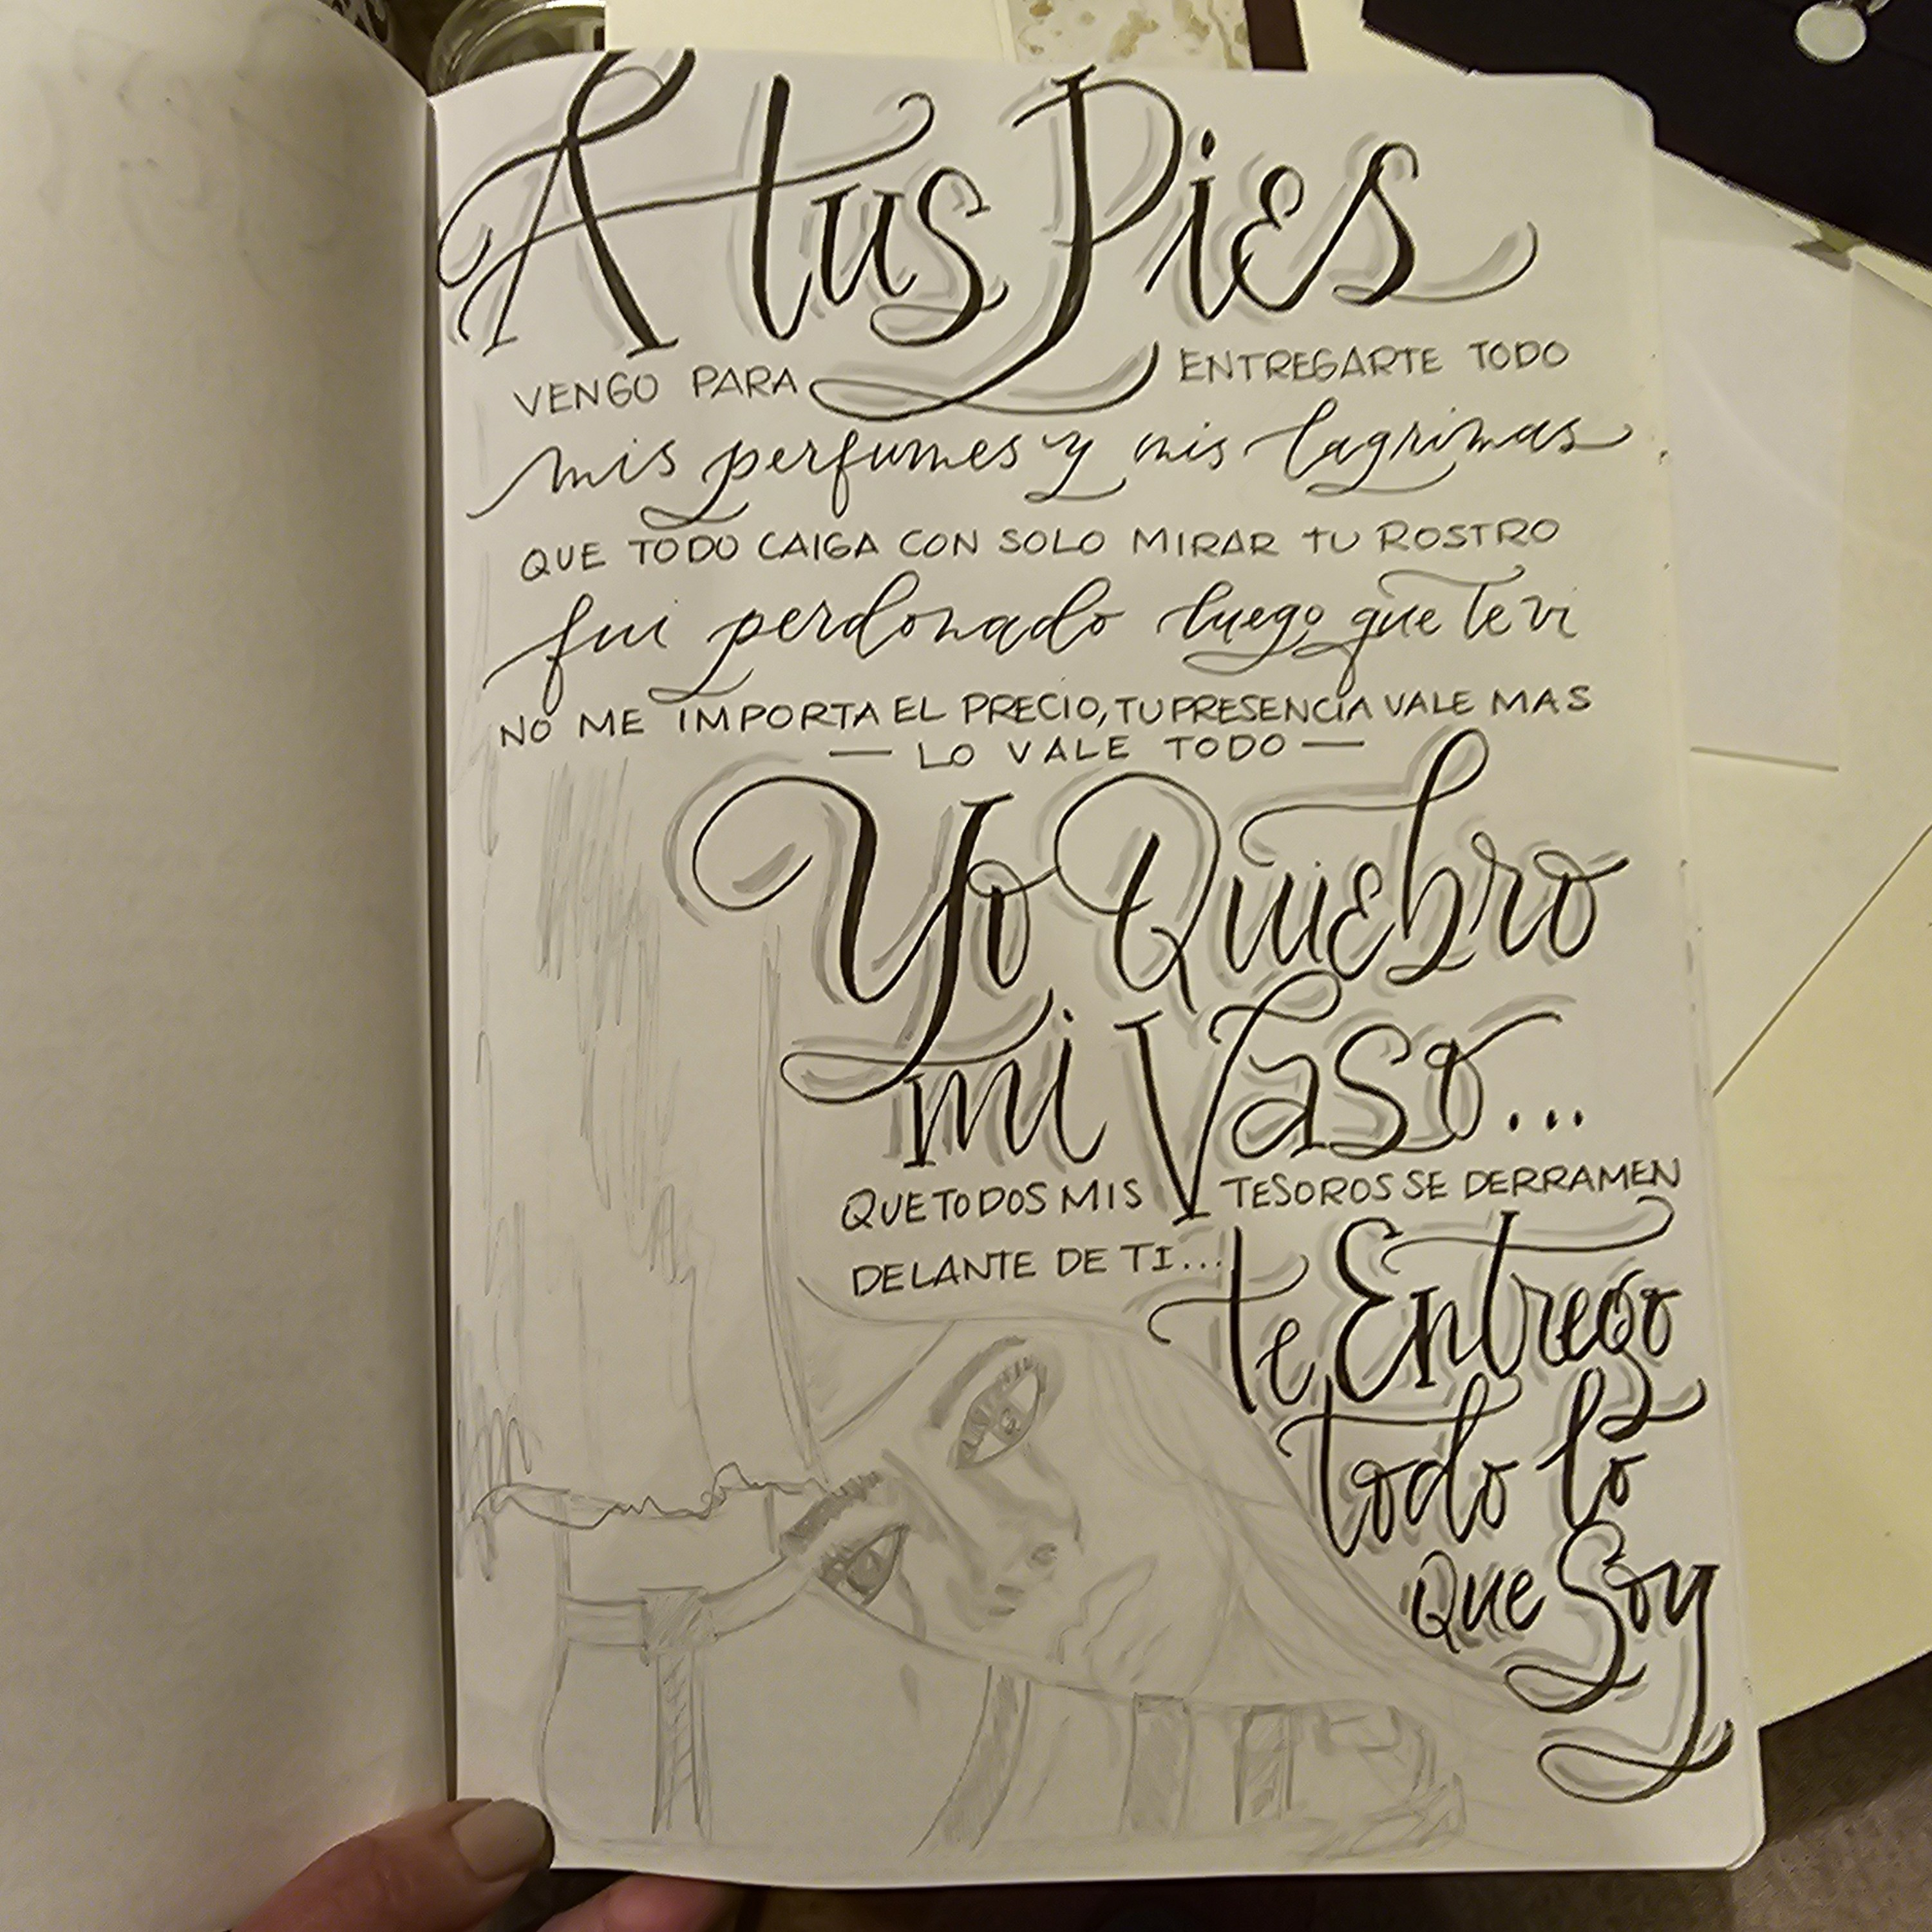 A tus Pies
VENGO PARA ENTREGARTE TODO
mis perfumes y mis lagrimas
QUE TODO CAIGA CON SOLO MIRAR TU ROSTRO
fui perdonado luego que te vi
NO ME IMPORTA EL PRECIO, TU PRESENCIA VALE MAS
— LO VALE TODO —
Yo Quiebro
mi Vaso...
QUE TODOS MIS TESOROS SE DERRAMEN
DELANTE DE TI...
te Entrego
todo lo
que Soy